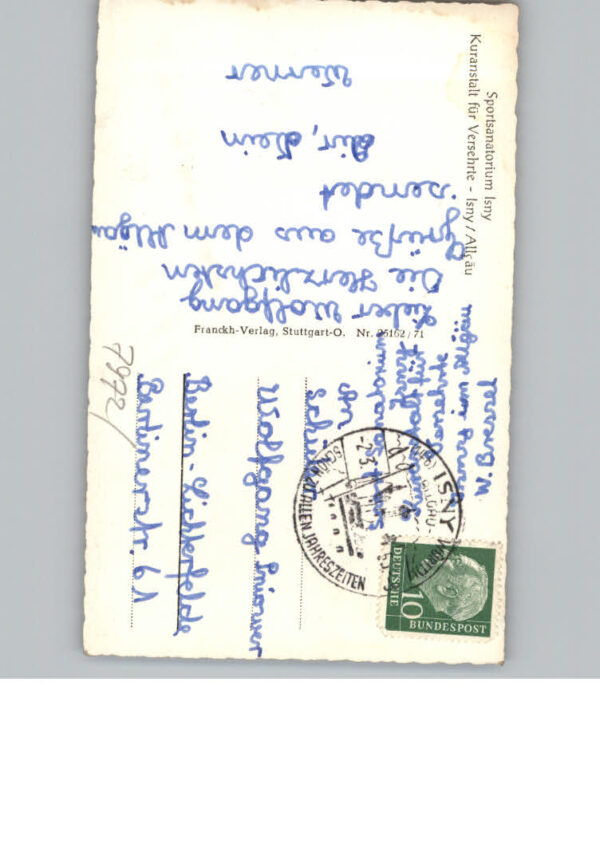 Sportsanatorium Isny
Kuranstalt für Versehrte - Isny / Allgäu
Lieber Wolfgang
Die Herzlichsten
Grüße aus dem Allgäu
sendet
dir, dein
Werner
Franckh-Verlag, Stuttgart-O. Nr. 25162/71
W. Brosowsky
An
Schüler
Wolfgang
Berlin-Lichterfelde
Berlinerstr. 61
7972/
ISNY
SCHÖN ZU ALLEN JAHRESZEITEN
-2.3.
DEUTSCHE
BUNDESPOST
10